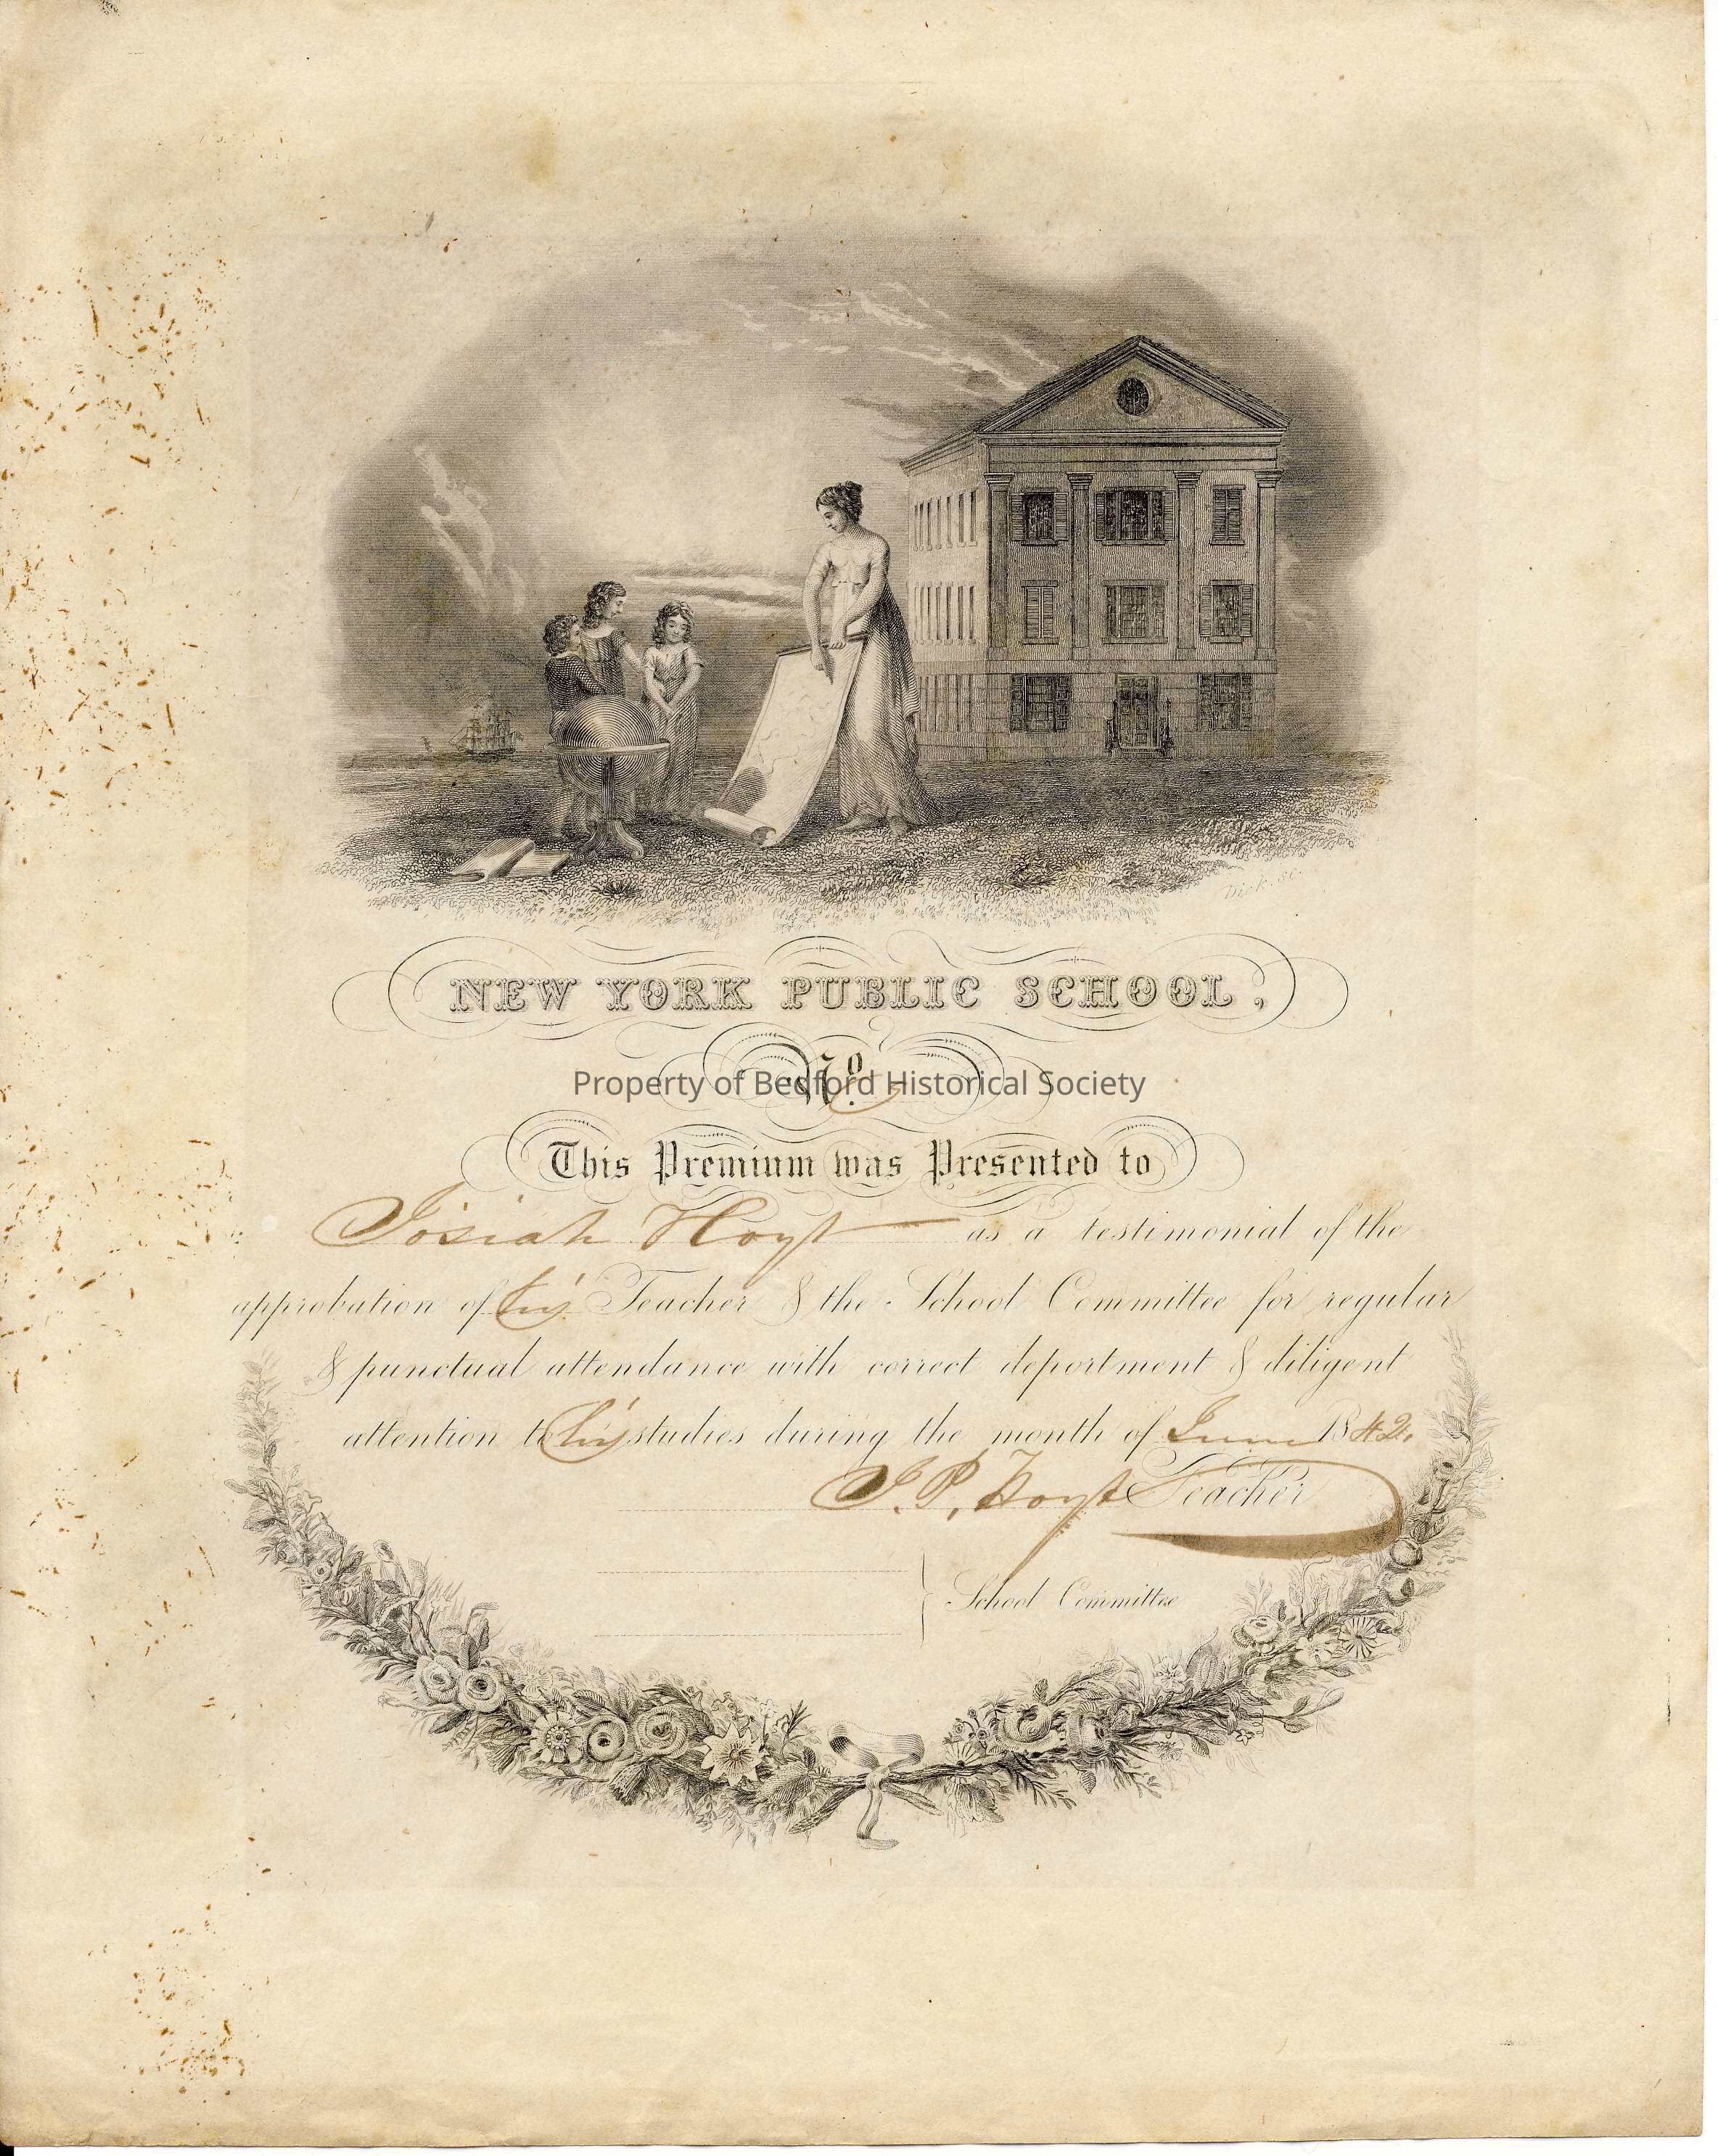 Dick. sc.
NEW YORK PUBLIC SCHOOL,
No.
Property of Bedford Historical Society
This Premium was Presented to
Josiah Hoyt as a testimonial of the
approbation of his Teacher & the School Committee for regular
& punctual attendance with correct deportment & diligent
attention to his studies during the month of June 1842.
J. P. Hoyt Teacher
School Committee